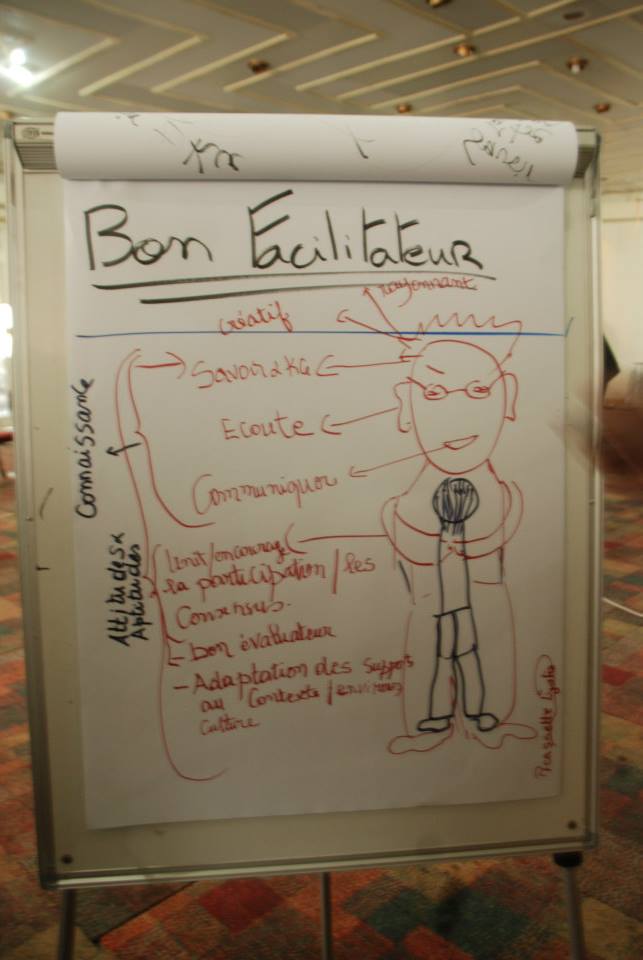 Bon Facilitateur
rayonnant
créatif
Savoir
Ecoute
Communiquer
Unit/encourage
la participation/les
Consensus.
- bon évaluateur
- Adaptation des supports
au Contexte/environ
Culture
Connaissance
Attitudes &
Aptitudes